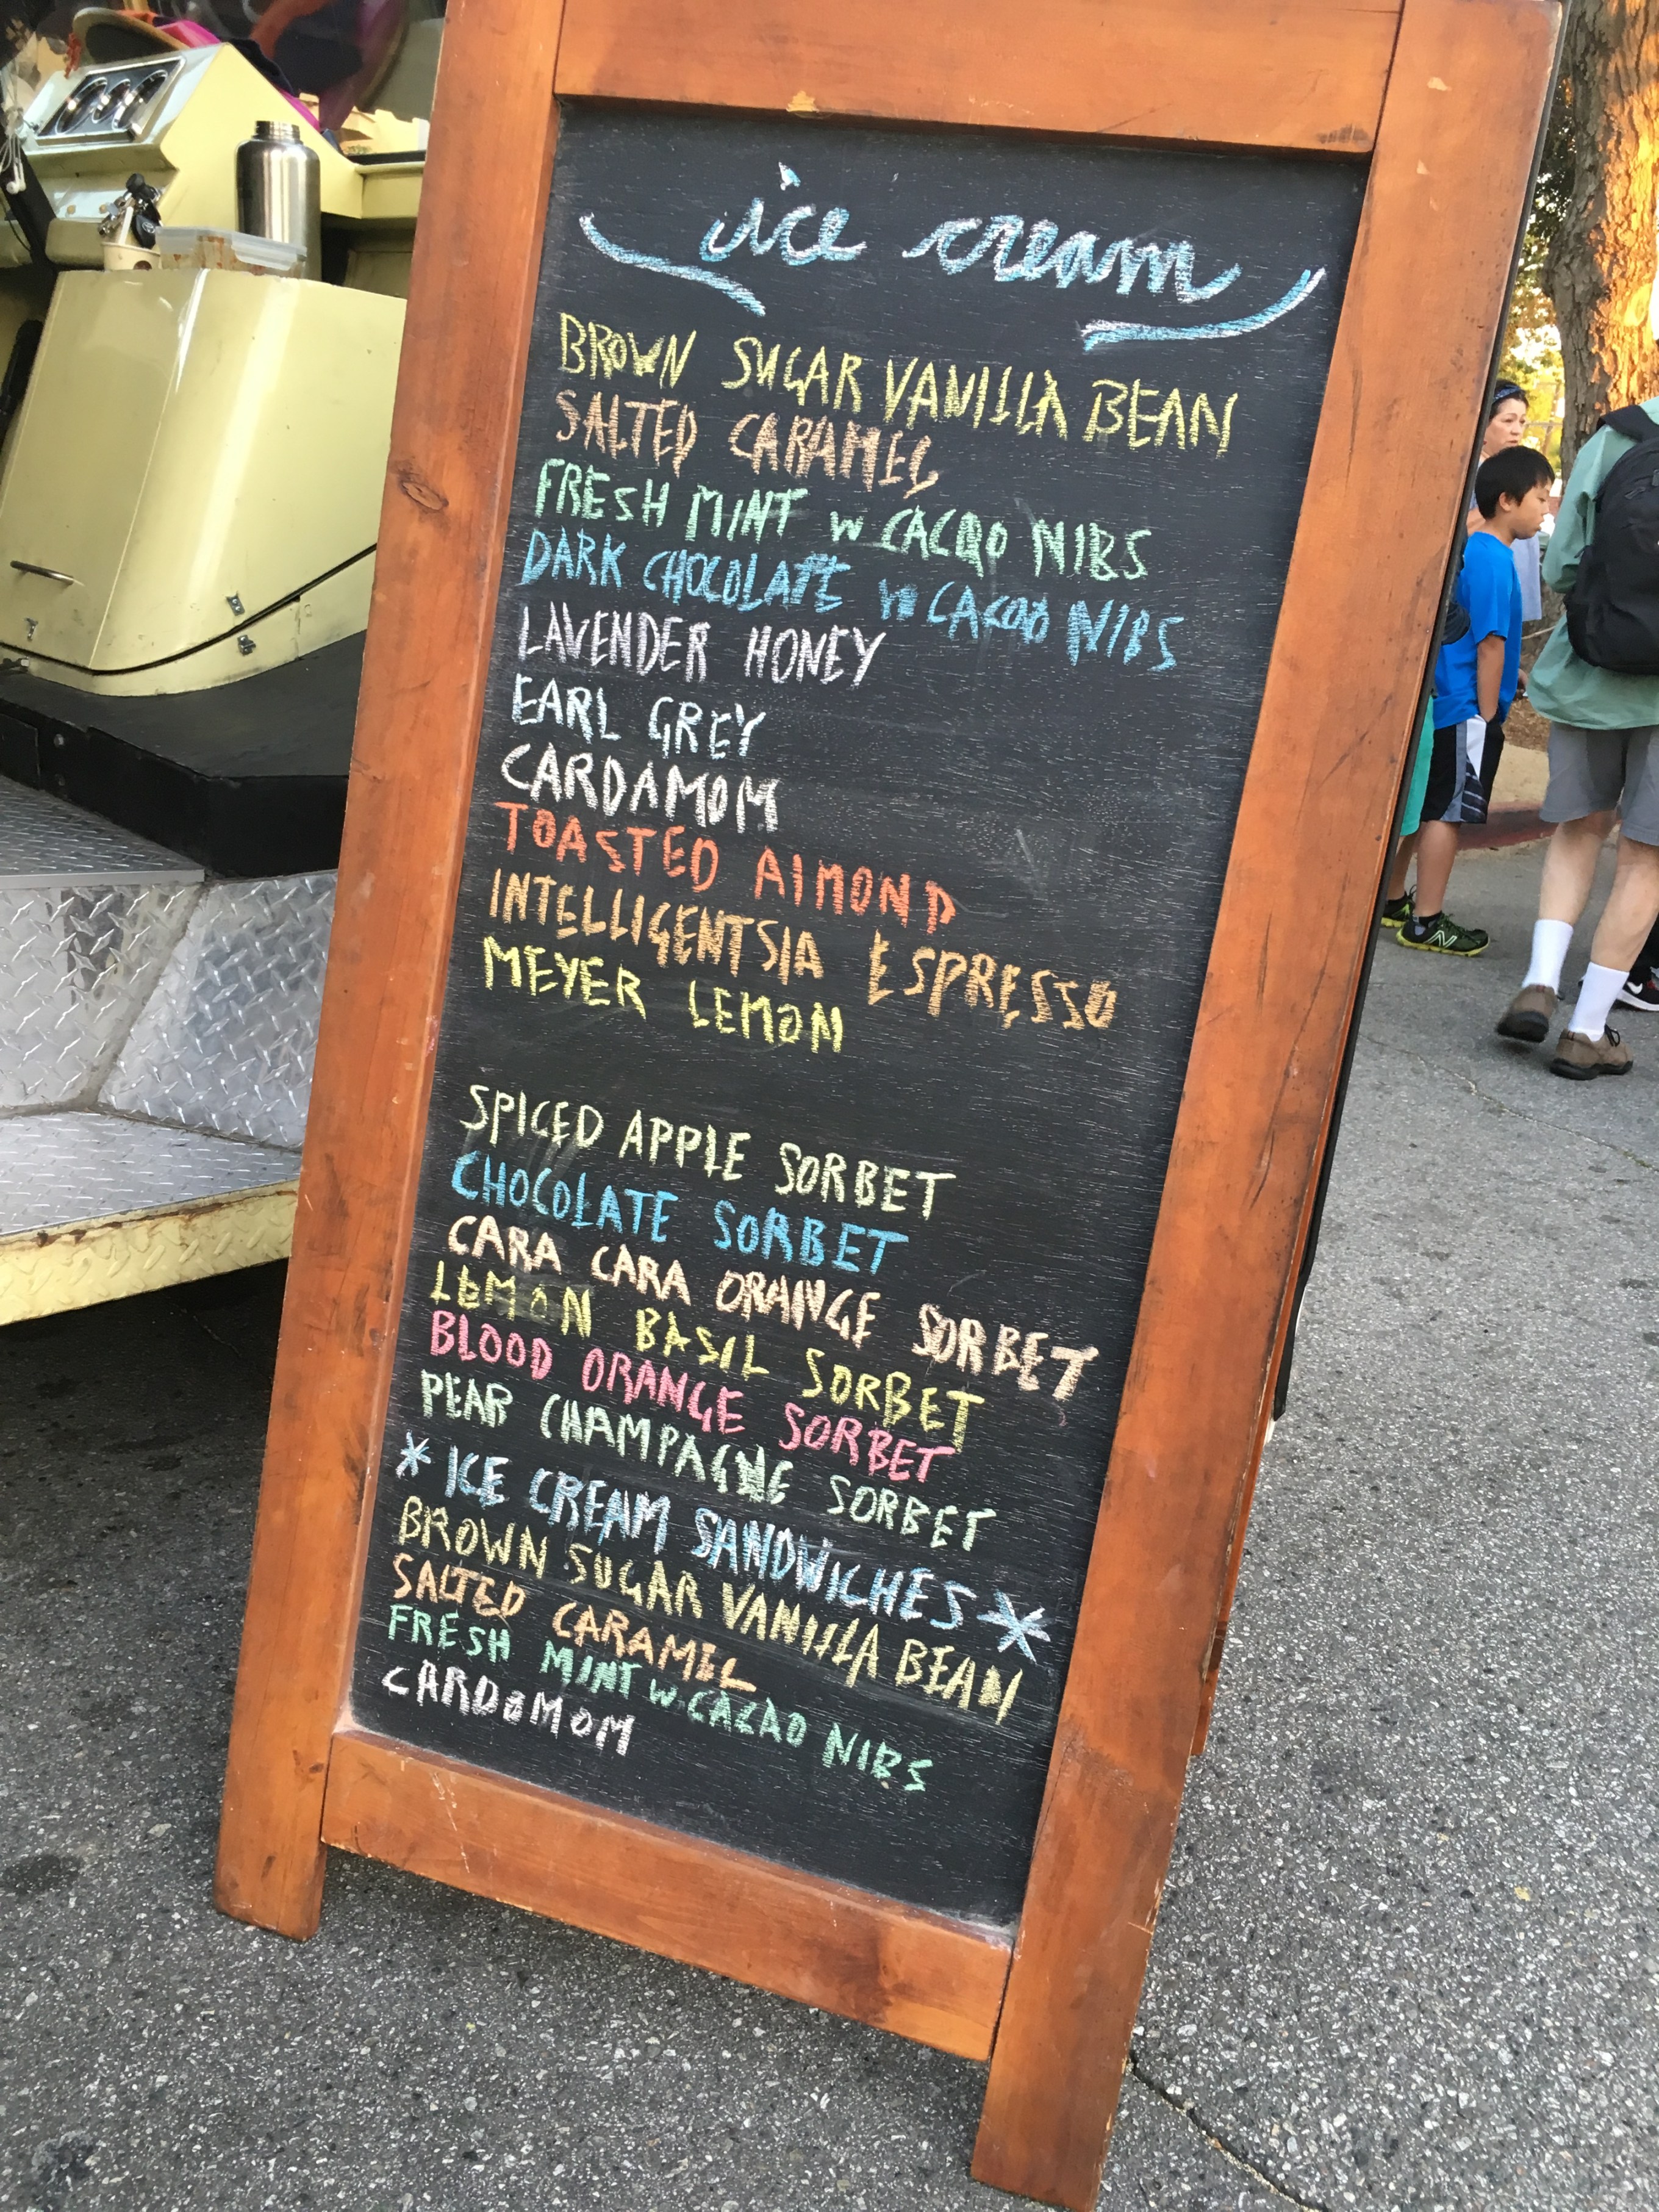 ice cream
BROWN SUGAR VANILLA BEAN
SALTED CARAMEL
FRESH MINT w CACAO NIBS
DARK CHOCOLATE w CACAO NIBS
LAVENDER HONEY
EARL GREY
CARDAMOM
TOASTED ALMOND
INTELLIGENTSIA ESPRESSO
MEYER LEMON
SPICED APPLE SORBET
CHOCOLATE SORBET
CARA CARA ORANGE SORBET
LEMON BASIL SORBET
BLOOD ORANGE SORBET
PEAR CHAMPAGNE SORBET
* ICE CREAM SANDWICHES *
BROWN SUGAR VANILLA BEAN
SALTED CARAMEL
FRESH MINT w. CACAO NIBS
CARDOMOM